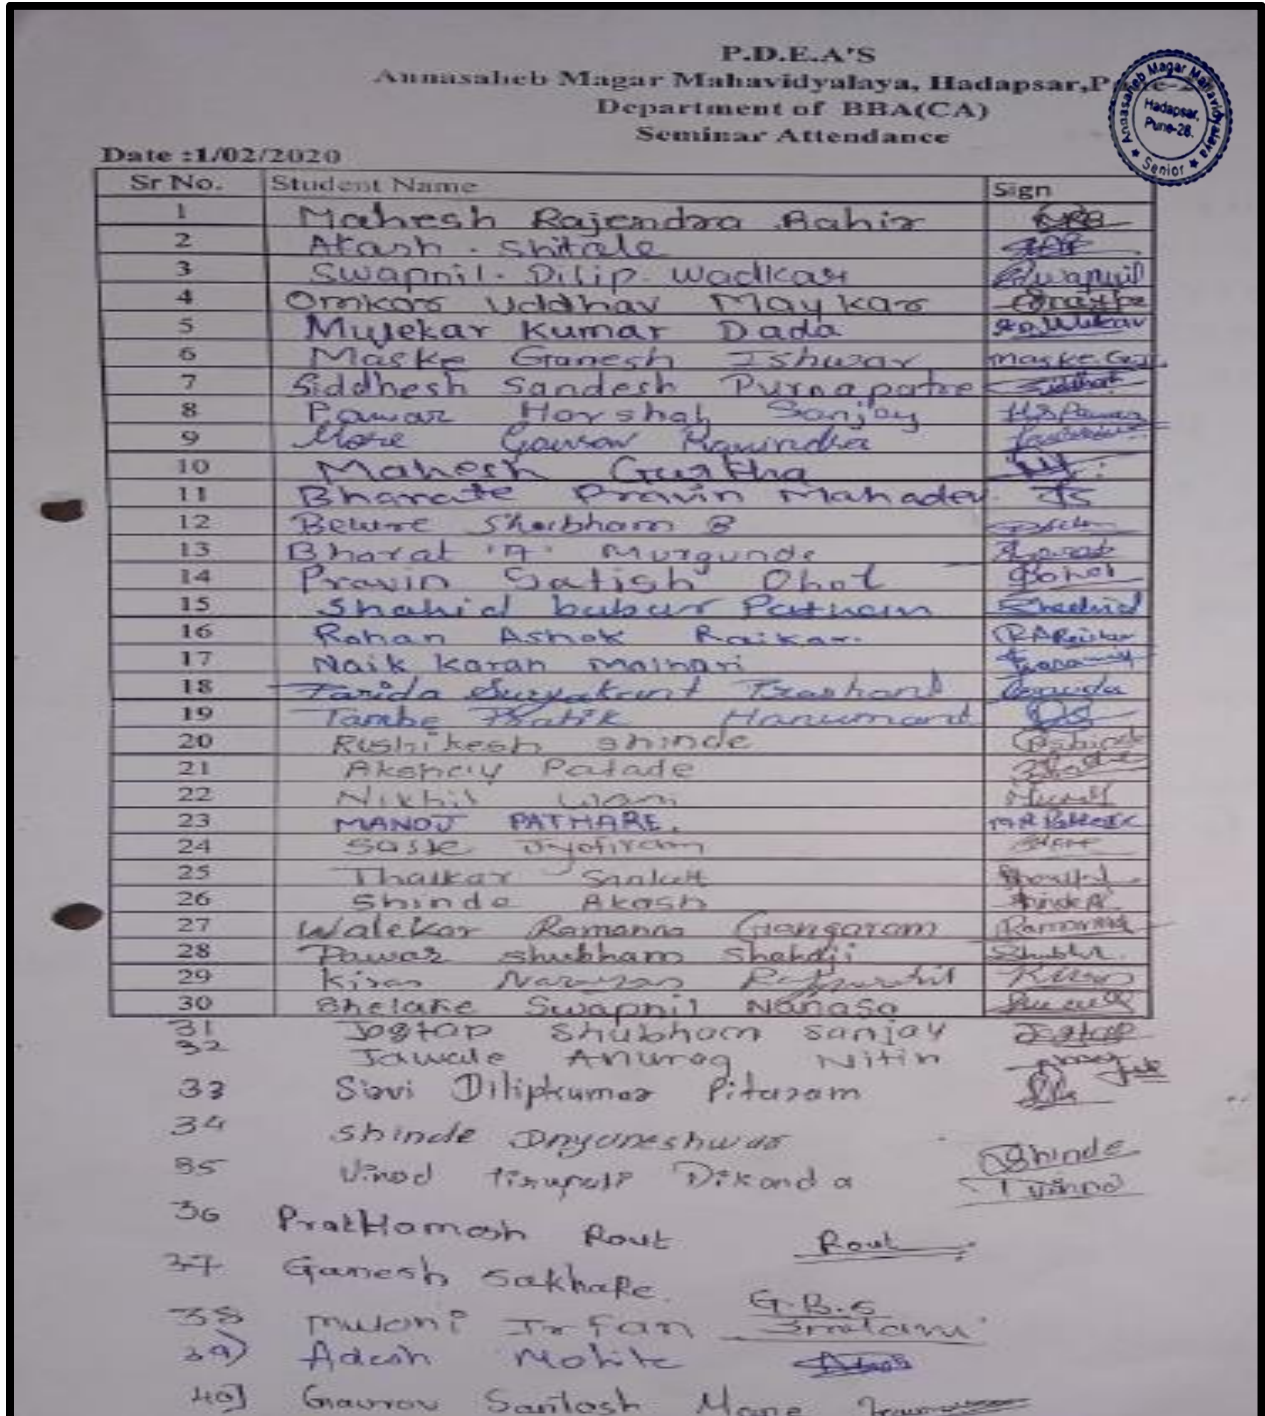 P.D.E.A'S
Annasaheb Magar Mahavidyalaya, Hadapsar, Pune-28
Department of BBA(CA)
Seminar Attendance
Annasaheb Magar Mahavidyalaya
Hadapsar,
Pune-28.
★ Senior ★
Date :1/02/2020
Sr No. Student Name Sign
1 Mahesh Rajendra Bahir
2 Akash . Shitale
3 Swapnil . Dilip . Wadkar Swapnil
4 Omkar Uddhav Maykar
5 Mulekar Kumar Dada
6 Maske Ganesh Ishwar Maske.G.I.
7 Siddhesh Sandesh Purnapatre
8 Pawar Harshal Sanjay H.S.Pawar
9 More Gaurav Ravindra
10 Mahesh Gurkha
11 Bharate Pravin Mahadev.
12 Belure Shubham B
13 Bharat 'A' Murgunde
14 Pravin Satish Ohol
15 Shahid babur Pathan Shahid
16 Rohan Ashok Raikar. R A Raikar
17 Naik Karan Malhari
18 Farida Suryakant Prashant
19 Tambe Pratik Hanumant
20 Rushikesh Shinde
21 Akshay Patade
22 Nikhil Wani
23 MANOJ PATHARE.
24 Saste Jyotiram
25 Thalkar Sanket
26 Shinde Akash Shinde A.
27 Walekar Ramanna Gangaram Ramanna
28 Pawar Shubham Shahaji
29 Kiran Narayan Kiran
30 Shelake Swapnil Nanaso
31 Jagtap Shubham Sanjay Jagtap
32 Jawale Anurag Nitin
33 Sirvi Dilipkumar Pitaram
34 Shinde Dnyaneshwar Shinde
35 Vinod Tirupati Dikonda T Vinod
36 PratHamesh Rout Rout
37 Ganesh Sakhare. G.B.S
38 Mulani Irfan Imulani
39) Adesh Mohite
40) Gaurav Santosh Mane